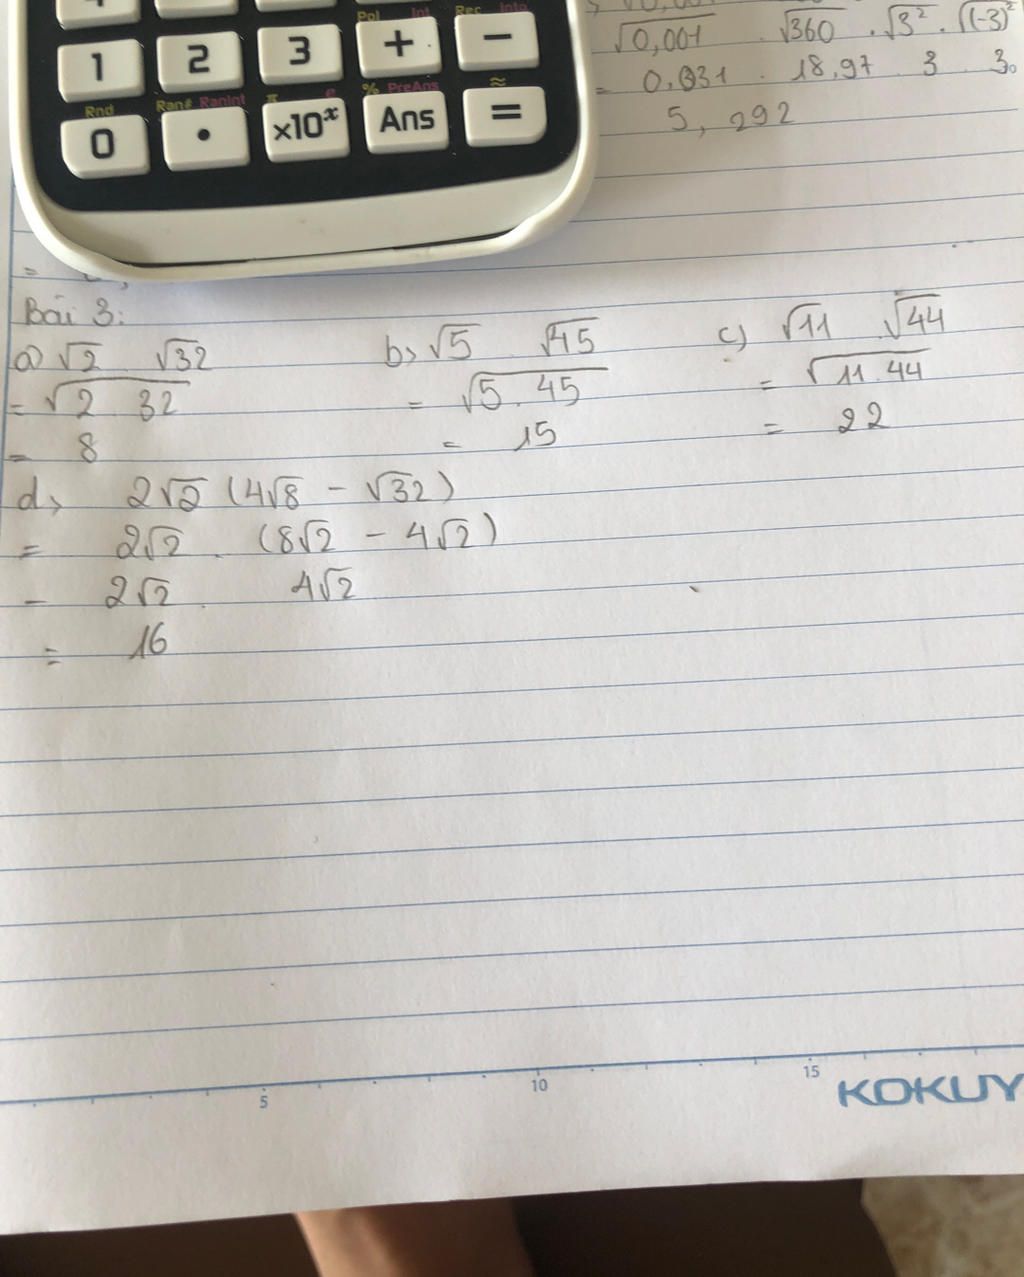 Pol Int Rec Into
1 2 3 + −
Rnd Ran# RanInt π e % PreAns ≈
0 • ×10ˣ Ans =
√0,001 . √360 . √3² . √(-3)²
= 0,031 . 18,97 3 3.
5,292
=
Bài 3:
a) √2 √32 b) √5 √45 c) √11 √44
= √2 . 32 = √5 . 45 = √11 . 44
= 8 = 15 = 22
d) 2√2 (4√8 − √32)
= 2√2 . (8√2 − 4√2)
= 2√2 . 4√2
= 16
5 10 15
KOKUY